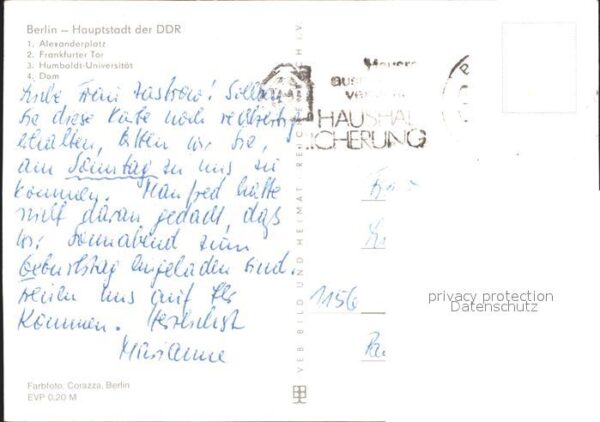 Berlin – Hauptstadt der DDR
1. Alexanderplatz
2. Frankfurter Tor
3. Humboldt-Universität
4. Dom
Liebe Frau Zastrow! Sollten
Sie diese Karte noch rechtzeitig
erhalten, bitten wir Sie,
am Sonntag zu uns zu
kommen. Manfred hatte
nicht daran gedacht, daß
wir Sonnabend zum
Geburtstag eingeladen sind.
freuen uns auf Ihr
Kommen. Herzlichst
Marianne
Farbfoto: Corazza, Berlin
EVP 0,20 M
VEB BILD UND HEIMAT REICHENBACH I. V.
HAUSHA
ICHERUNG
1156
privacy protection
Datenschutz